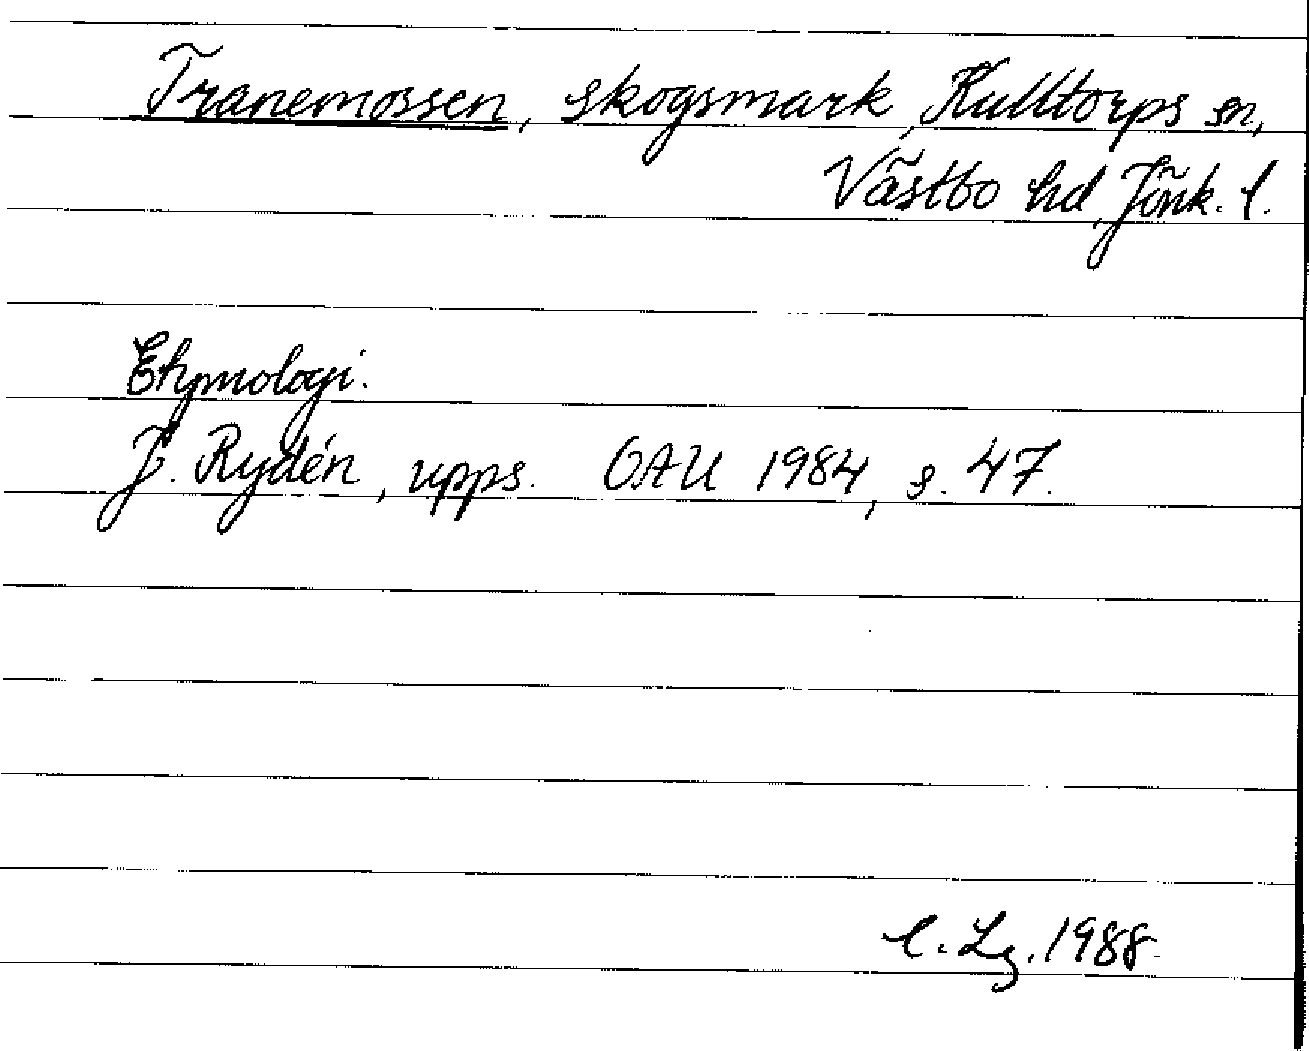 Tranemossen, skogsmark, Kulltorps sn,
Västbo hd, Jönk. l.
Etymologi.
J. Rydén, upps. OAU 1984, s. 47.
C. Lg. 1988